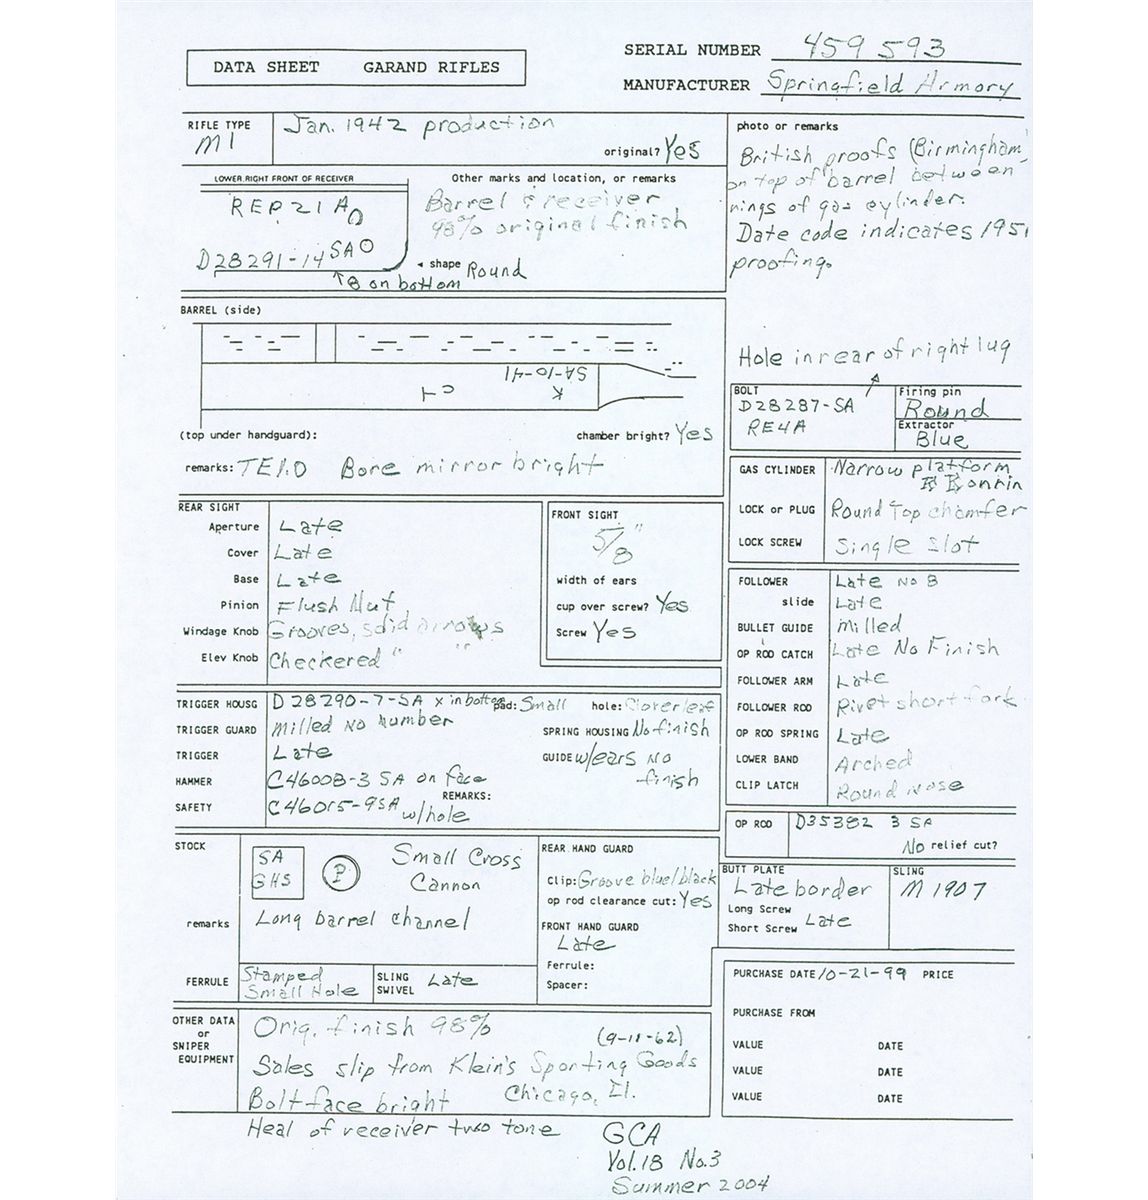 DATA SHEET GARAND RIFLES
SERIAL NUMBER 459 593
MANUFACTURER Springfield Armory
RIFLE TYPE
M1
Jan. 1942 production
original? Yes
LOWER RIGHT FRONT OF RECEIVER
REP 21 A
D28291-14 SA
8 on bottom
Other marks and location, or remarks
Barrel & receiver
98% original finish
shape Round
photo or remarks
British proofs (Birmingham)
on top of barrel between
rings of gas cylinder.
Date code indicates 1951
proofing.
Hole in rear of right lug
BARREL (side)
SA-10-41
K
(top under handguard):
chamber bright? Yes
remarks: TE1.0 Bore mirror bright
BOLT
D28287-SA
RE4A
Firing pin
Round
Extractor
Blue
GAS CYLINDER Narrow platform
LOCK or PLUG Round Top chamfer
LOCK SCREW Single slot
REAR SIGHT
Aperture Late
Cover Late
Base Late
Pinion Flush Nut
Windage Knob Grooves, solid arrows
Elev Knob Checkered " "
FRONT SIGHT
5/8"
width of ears
cup over screw? Yes
Screw Yes
FOLLOWER Late No 8
slide Late
BULLET GUIDE Milled
OP ROD CATCH Late No Finish
FOLLOWER ARM Late
FOLLOWER ROD Rivet short fork
OP ROD SPRING Late
LOWER BAND Arched
CLIP LATCH Round Nose
TRIGGER HOUSG D 28290-7-SA x in bottom pad: Small hole: Cloverleaf
TRIGGER GUARD Milled No Number
SPRING HOUSING No finish
TRIGGER Late
GUIDE w/ears No finish
HAMMER C46008-3 SA on face
REMARKS:
SAFETY C46015-9SA w/hole
OP ROD D35382 3 SA
No relief cut?
STOCK
SA
GHS
P
Small Cross
Cannon
remarks Long barrel channel
FERRULE Stamped
Small Hole
SLING SWIVEL Late
REAR HAND GUARD
Clip: Groove blue/black
op rod clearance cut: Yes
FRONT HAND GUARD
Late
Ferrule:
Spacer:
BUTT PLATE
Late border
Long Screw
Short Screw Late
SLING
M1907
PURCHASE DATE 10-21-99 PRICE
PURCHASE FROM
VALUE DATE
VALUE DATE
VALUE DATE
OTHER DATA
or
SNIPER
EQUIPMENT
Orig. finish 98%
(9-11-62)
Sales slip from Klein's Sporting Goods
Chicago, Il.
Bolt face bright
Heal of receiver two tone
GCA
Vol.18 No.3
Summer 2004